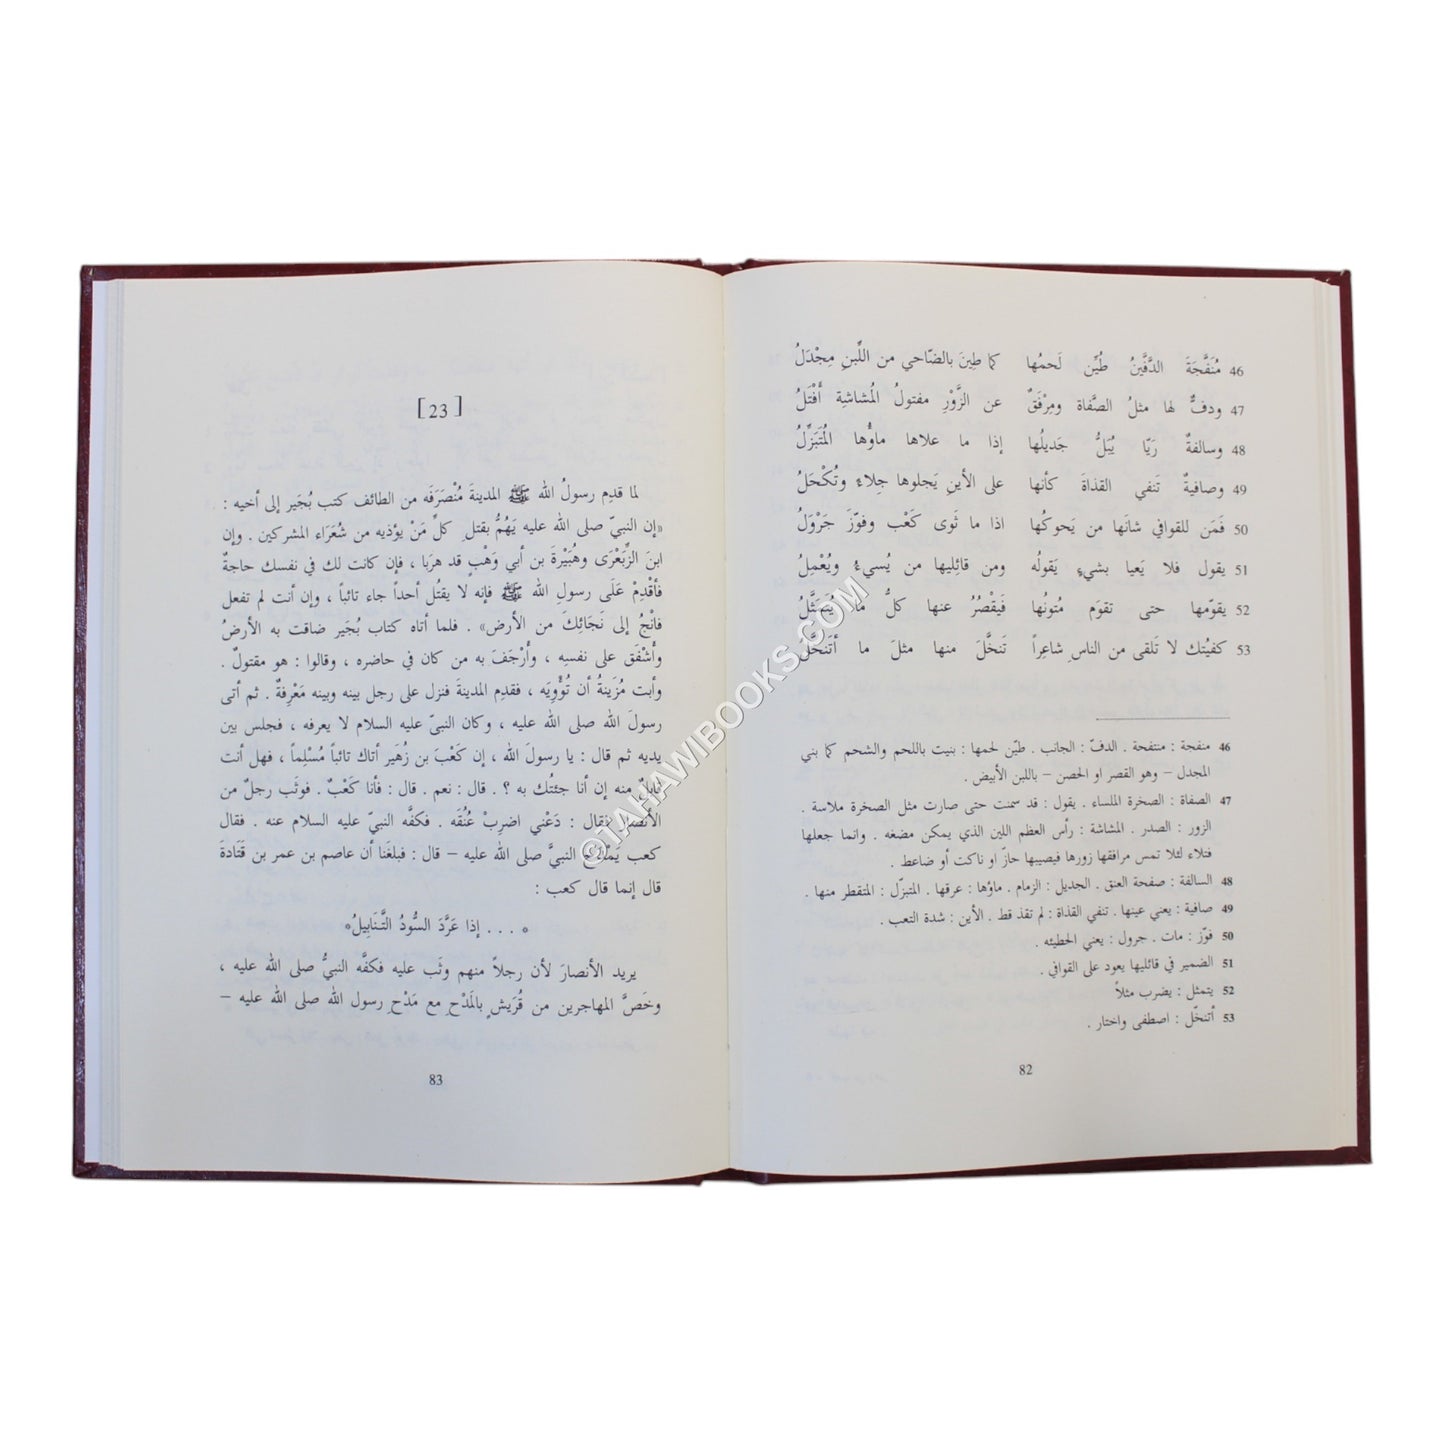 46 مُنَفَّجَةَ الدَّفَّينُ طُيِّن لَحمُها كما طِينَ بالضّاحي من اللِّبنِ مِجْدَلُ
47 ودفٌّ لها مثلُ الصَّفاة ومِرْفَقٌ عن الزَّوْرِ مفتولُ المُشاشةِ أَفْتَلُ
48 وسالفةٌ رَيّا يُبَلُّ جَديلُها إذا ما علاها ماؤُها المُتَبَزِّلُ
49 وصافيةٌ تَنفي القذاةَ كأنها على الأينِ يَجلوها جِلاءٌ وتُكْحَلُ
50 فَمَن للقوافي شانَها من يَحوكُها اذا ما ثَوى كَعْب وفوَّزَ جَرْوَلُ
51 يقول فلا يَعيا بشيءٍ يَقولُه ومن قائِليها من يُسيءُ ويُعْمِلُ
52 يقوّمها حتى تقومَ مُتونُها فَيقْصُرُ عنها كلُّ ما يُتَمثَّلُ
53 كفيُتك لا تَلقى من الناسِ شاعِراً تَنخَّلَ منها مثلَ ما أتَنخَّلُ
46 منفجة : منتفحة . الدفّ : الجانب . طيّن لحمها : بنيت باللحم والشحم كما بني
المجدل – وهو القصر او الحصن – باللبن الأبيض .
47 الصفاة : الصخرة الملساء . يقول : قد سمنت حتى صارت مثل الصخرة ملاسة .
الزور : الصدر . المشاشة : رأس العظم اللين الذي يمكن مضغه . وانما جعلها
فتلاء لئلا تمس مرافقها زورها فيصيبها حازّ او ناكت أو ضاعط .
48 السالفة : صفحة العنق . الجديل : الزمام . ماؤها : عرقها . المتبزّل : المتقطر منها .
49 صافية : يعني عينها . تنفي القذاة : لم تقذ قط . الأين : شدة التعب .
50 فوّز : مات . جرول : يعني الحطيئه .
51 الضمير في قائليها يعود على القوافي .
52 يتمثل : يضرب مثلاً
53 أتنخّل : اصطفى واختار .
82
[ 23 ]
لما قدِم رسولُ الله ﷺ المدينةَ مُنْصَرَفَه من الطائف كتب بُجَير إلى أخيه :
«إن النبيّ صلى الله عليه يَهُمُّ بقتلِ كلِّ مَنْ يؤذيه من شُعَرَاء المشركين . وإن
ابنَ الزِّبَعْرَى وهُبَيْرةَ بن أبي وَهْبٍ قد هرَبا ، فإن كانت لك في نفسك حاجةٌ
فأقْدِمْ عَلَى رسولِ الله ﷺ فإنه لا يقتُل أحداً جاء تائباً ، وإن أنت لم تفعل
فانْجُ إلى نَجَائِكَ من الأرض» . فلما أتاه كتاب بُجَير ضاقت به الأرضُ
وأشْفَق على نفسِه ، وأرْجَفَ به من كان في حاضره ، وقالوا : هو مقتولٌ .
وأبت مُزَينةُ أن تُؤْوِيَه ، فقدِم المدينةَ فنزل على رجل بينه وبينه مَعْرِفةٌ . ثم أتى
رسولَ الله صلى الله عليه ، وكان النبىّ عليه السلام لا يعرفه ، فجلس بين
يديه ثم قال : يا رسولَ الله ، إن كَعْبَ بن زُهَير أتاك تائباً مُسْلِماً ، فهل أنت
قابلٌ منه إن أنا جئتُك به ؟ . قال : نعم . قال : فأنا كَعْبٌ . فوثَب رجلٌ من
الأنصار فقال : دَعْني اضرِبْ عُنُقَه . فكفَّه النبيّ عليه السلام عنه . فقال
كعب يمدح النبيَّ صلى الله عليه – قال : فبلغَنا أن عاصم بن عمر بن قَتَادةَ
قال إنما قال كعب :
* . . . إذا عَرَّدَ السُّودُ التَّنابِيلُ*
يريد الأنصارَ لأن رجلاً منهم وثَب عليه فكفَّه النبيُّ صلى الله عليه ،
وخَصَّ المهاجرين من قُرَيشٍ بالمَدْحِ مع مَدْحِ رسول الله صلى الله عليه –
83
©TAHAWIBOOKS.COM